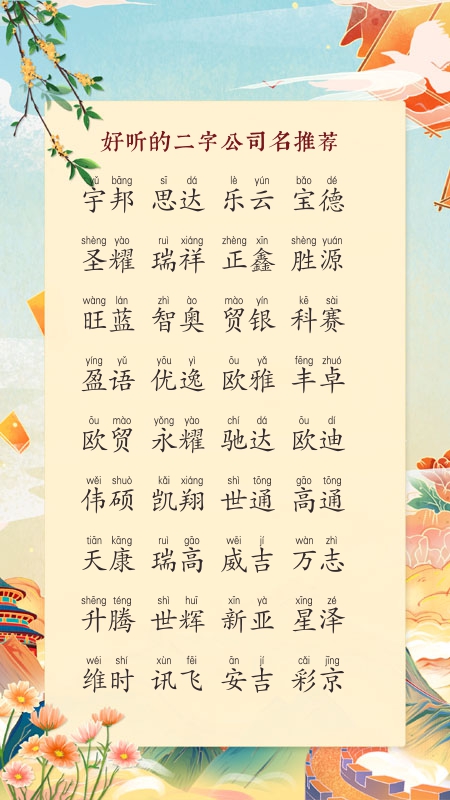 好听的二字公司名推荐
yǔ bāng sī dá lè yún bǎo dé
宇邦 思达 乐云 宝德
shèng yào ruì xiáng zhèng xīn shèng yuán
圣耀 瑞祥 正鑫 胜源
wàng lán zhì ào mào yín kē sài
旺蓝 智奥 贸银 科赛
yíng yǔ yōu yì ōu yǎ fēng zhuó
盈语 优逸 欧雅 丰卓
ōu mào yǒng yào chí dá ōu dí
欧贸 永耀 驰达 欧迪
wěi shuò kǎi xiáng shì tōng gāo tōng
伟硕 凯翔 世通 高通
tiān kāng ruì gāo wēi jí wàn zhì
天康 瑞高 威吉 万志
shēng téng shì huī xīn yà xīng zé
升腾 世辉 新亚 星泽
wéi shí xùn fēi ān jí cǎi jīng
维时 讯飞 安吉 彩京